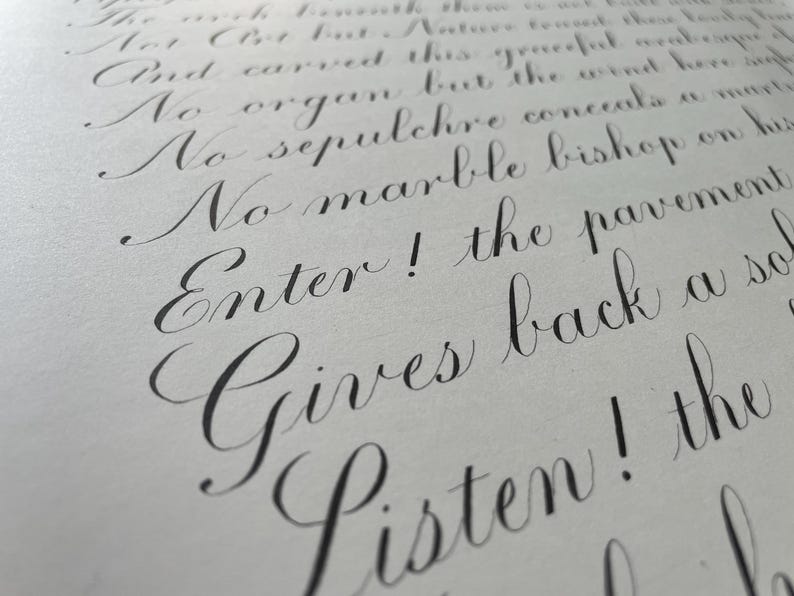 The arch beneath them is not built with
Not Art but Nature traced these lovely
And carved this graceful arabesque
No organ but the wind here sighs
No sepulchre conceals a
No marble bishop on his
Enter! the pavement
Gives back a
Listen! the